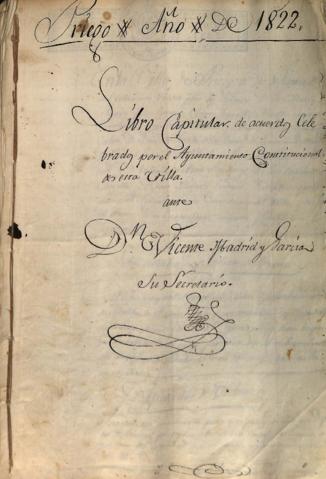 Priego Año DE 1822.
Libro Capitular. de acuerdos Cele
brados por el Ayuntamiento Constitucional
de esta Villa.
ante
Dn. Vicente Madrid y Garcia
Su Secretario.